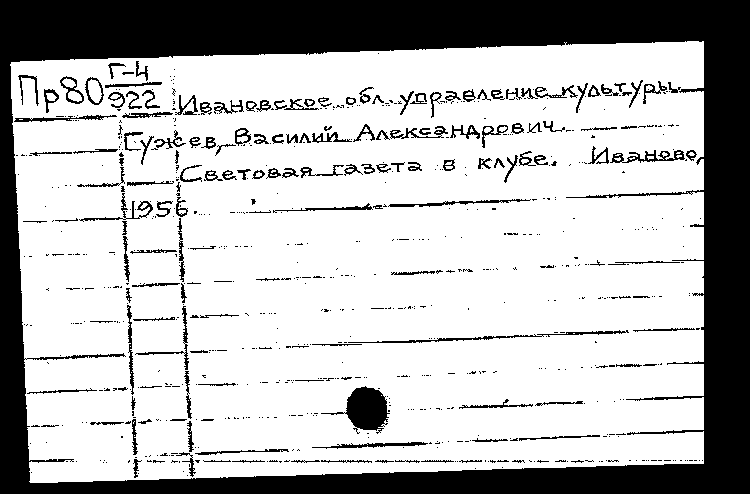 Пр80 Г-4/922
Ивановское обл. управление культуры.
Гужев, Василий Александрович.
Световая газета в клубе. Иваново,
1956.